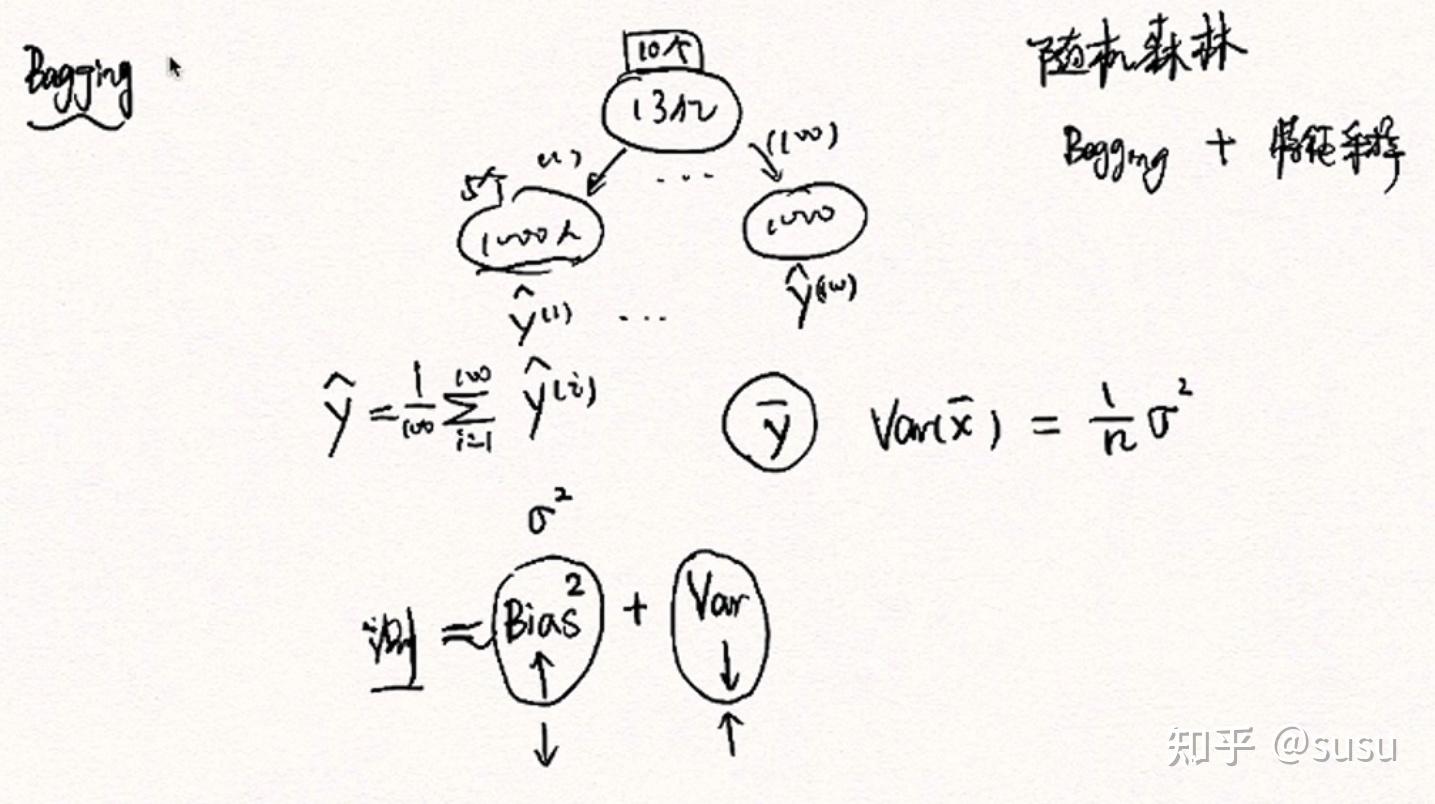 Bagging
10个
13亿
(1)
...
(100)
5个
1000人
1000
Ŷ⁽¹⁾ ... Ŷ⁽¹⁰⁰⁾
随机森林
Bagging + 特征采样
Ŷ = 1/100 ∑_{i=1}^{100} Ŷ⁽ⁱ⁾
ȳ Var(x̄) = 1/n σ²
σ²
= Bias² + Var
↑ ↓
↓ ↑
知乎 @susu